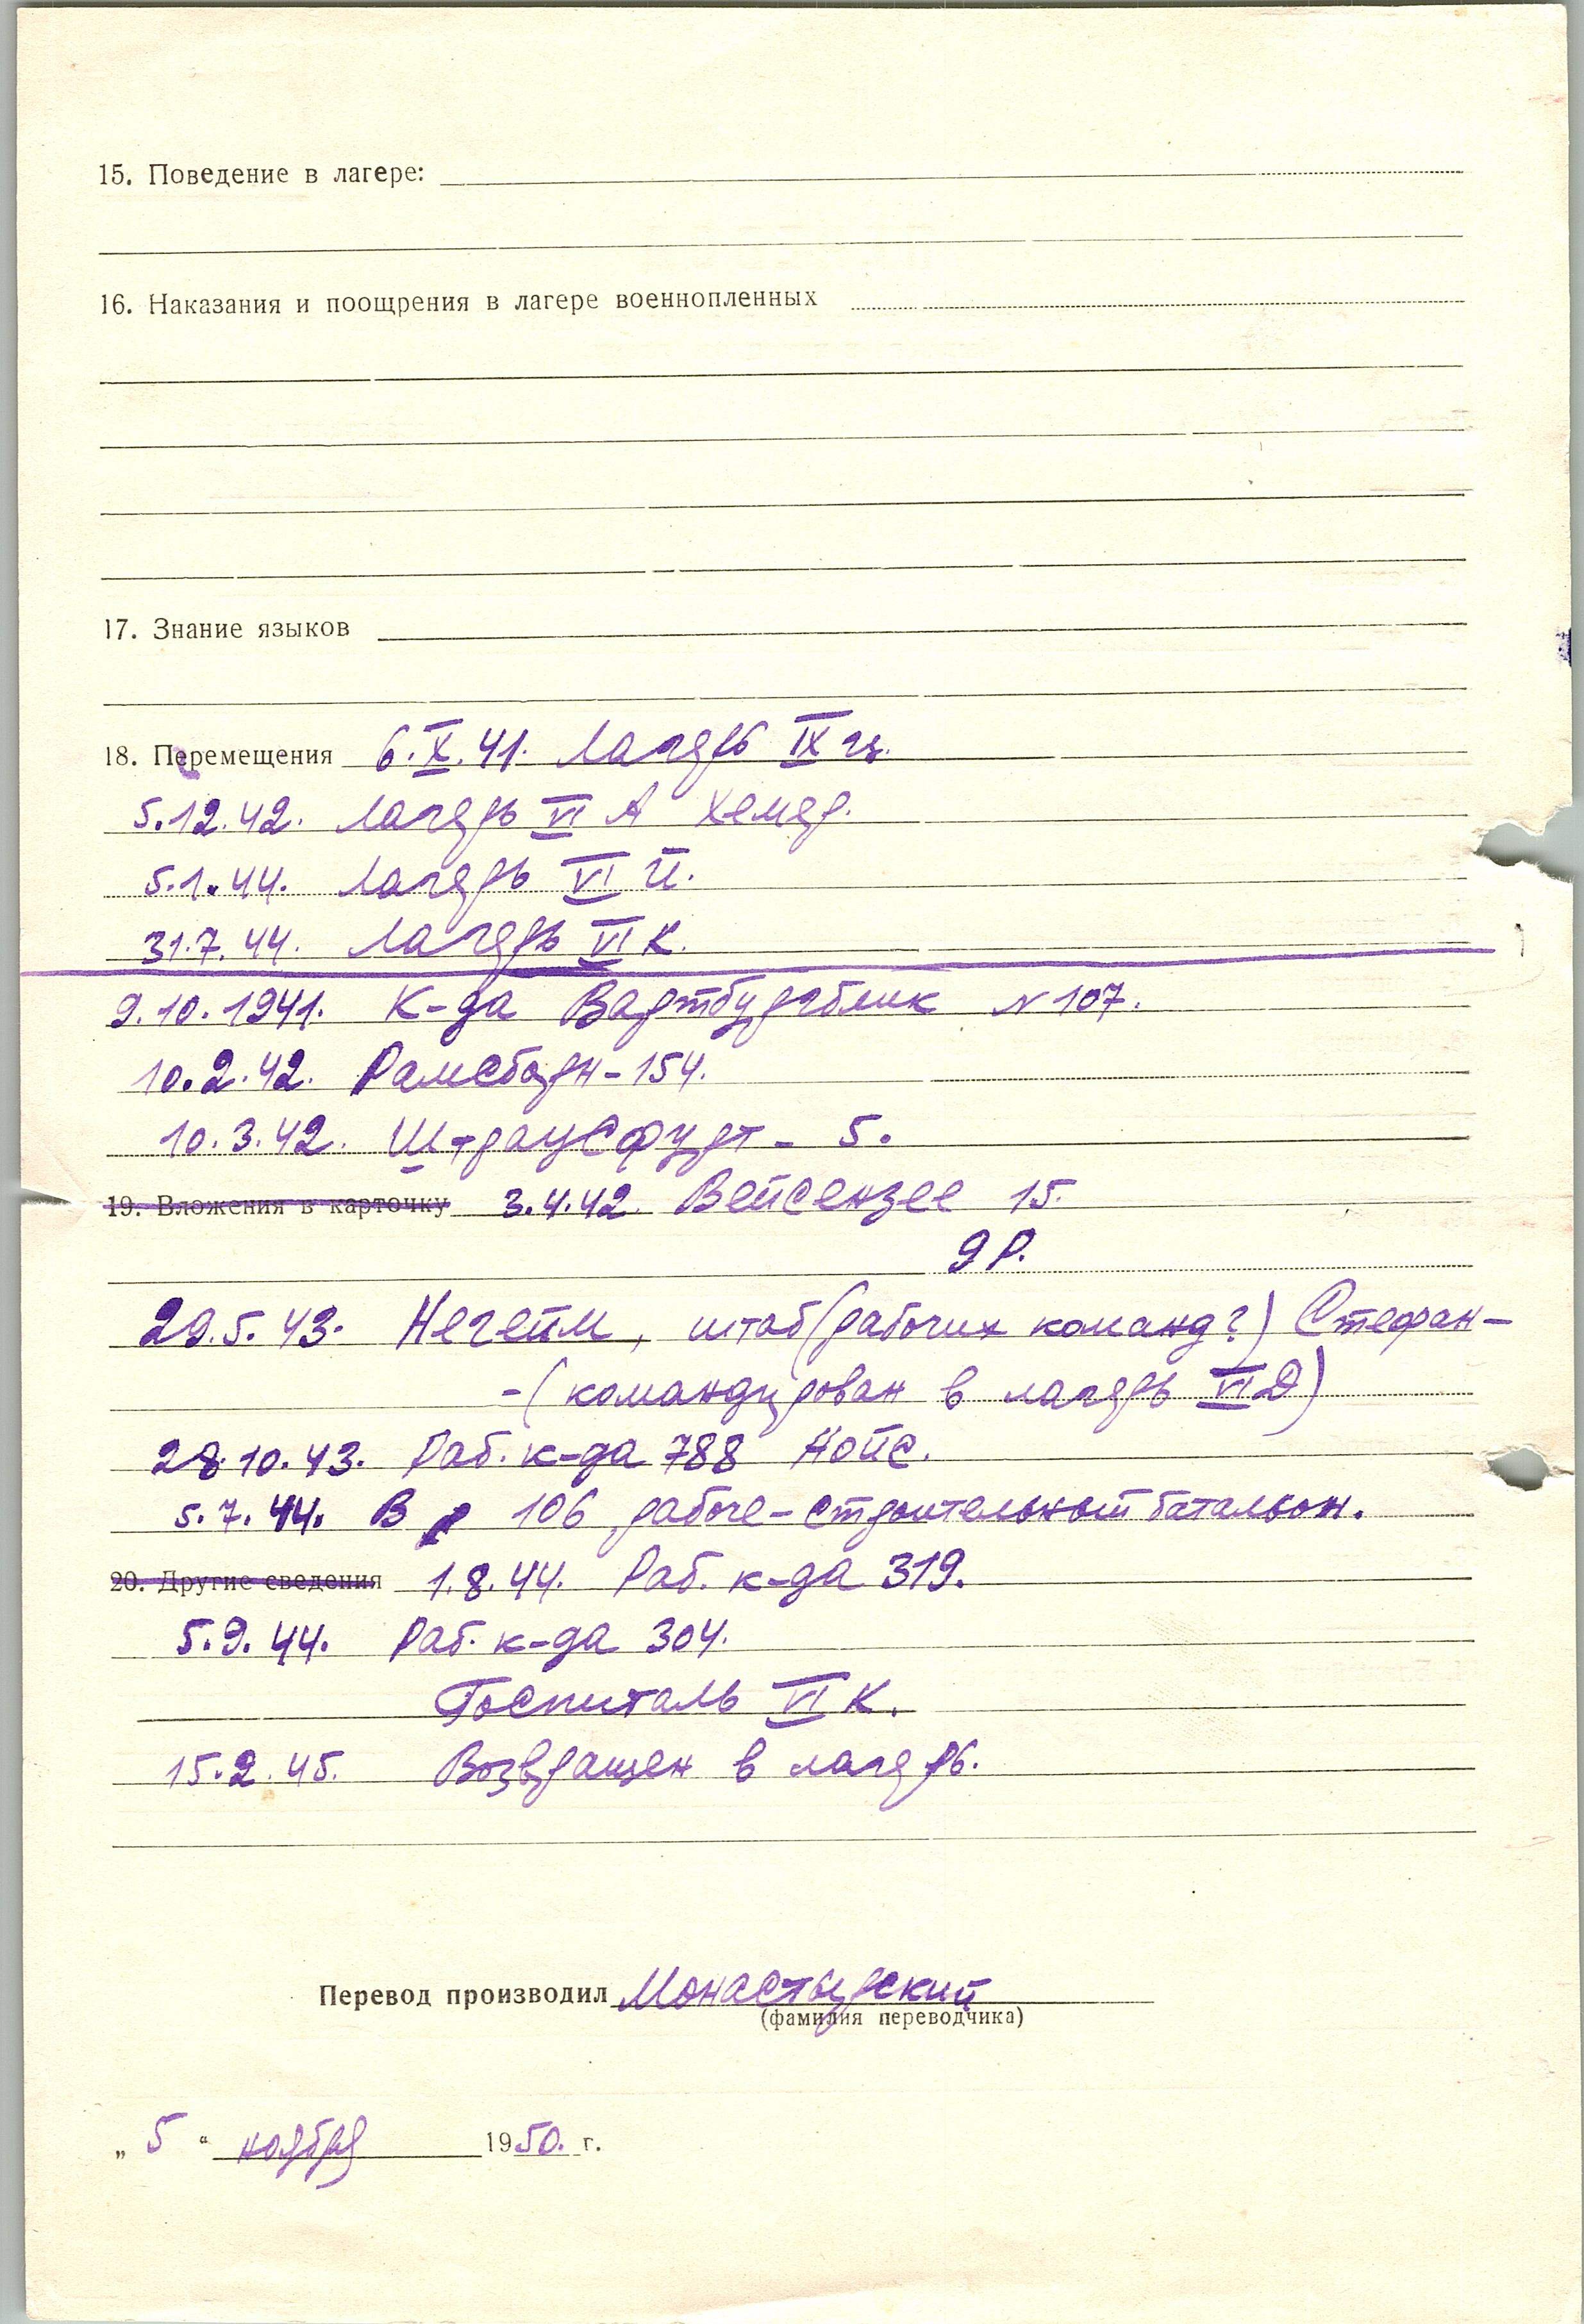 15. Поведение в лагере:
16. Наказания и поощрения в лагере военнопленных
17. Знание языков
18. Перемещения 6.X.41. Лагерь IX ц.
5.12.42. Лагерь VI А Хемер.
5.1.44. Лагерь VI
31.7.44. Лагерь VI К.
9.10.1941. К-да Вартбургблик N 107.
10.2.42. Рамсборн - 154.
10.3.42. Штраусфурт - 5.
19. Вложения в карточку 3.4.42. Вейсензее 15.
9 Р.
29.5.43. Негейм, штаб (рабочих команд?) Стефан-
-(командирован в лагерь VI Д)
28.10.43. Раб. к-да 788 Нойс.
5.7.44. В 106 рабоче-строительный батальон.
20. Другие сведения 1.8.44. Раб. к-да 319.
5.9.44. Раб. к-да 304.
Госпиталь VI К.
15.2.45. Возвращен в лагерь.
Перевод производил Монастырский
(фамилия переводчика)
„ 5 “ ноября 1950. г.